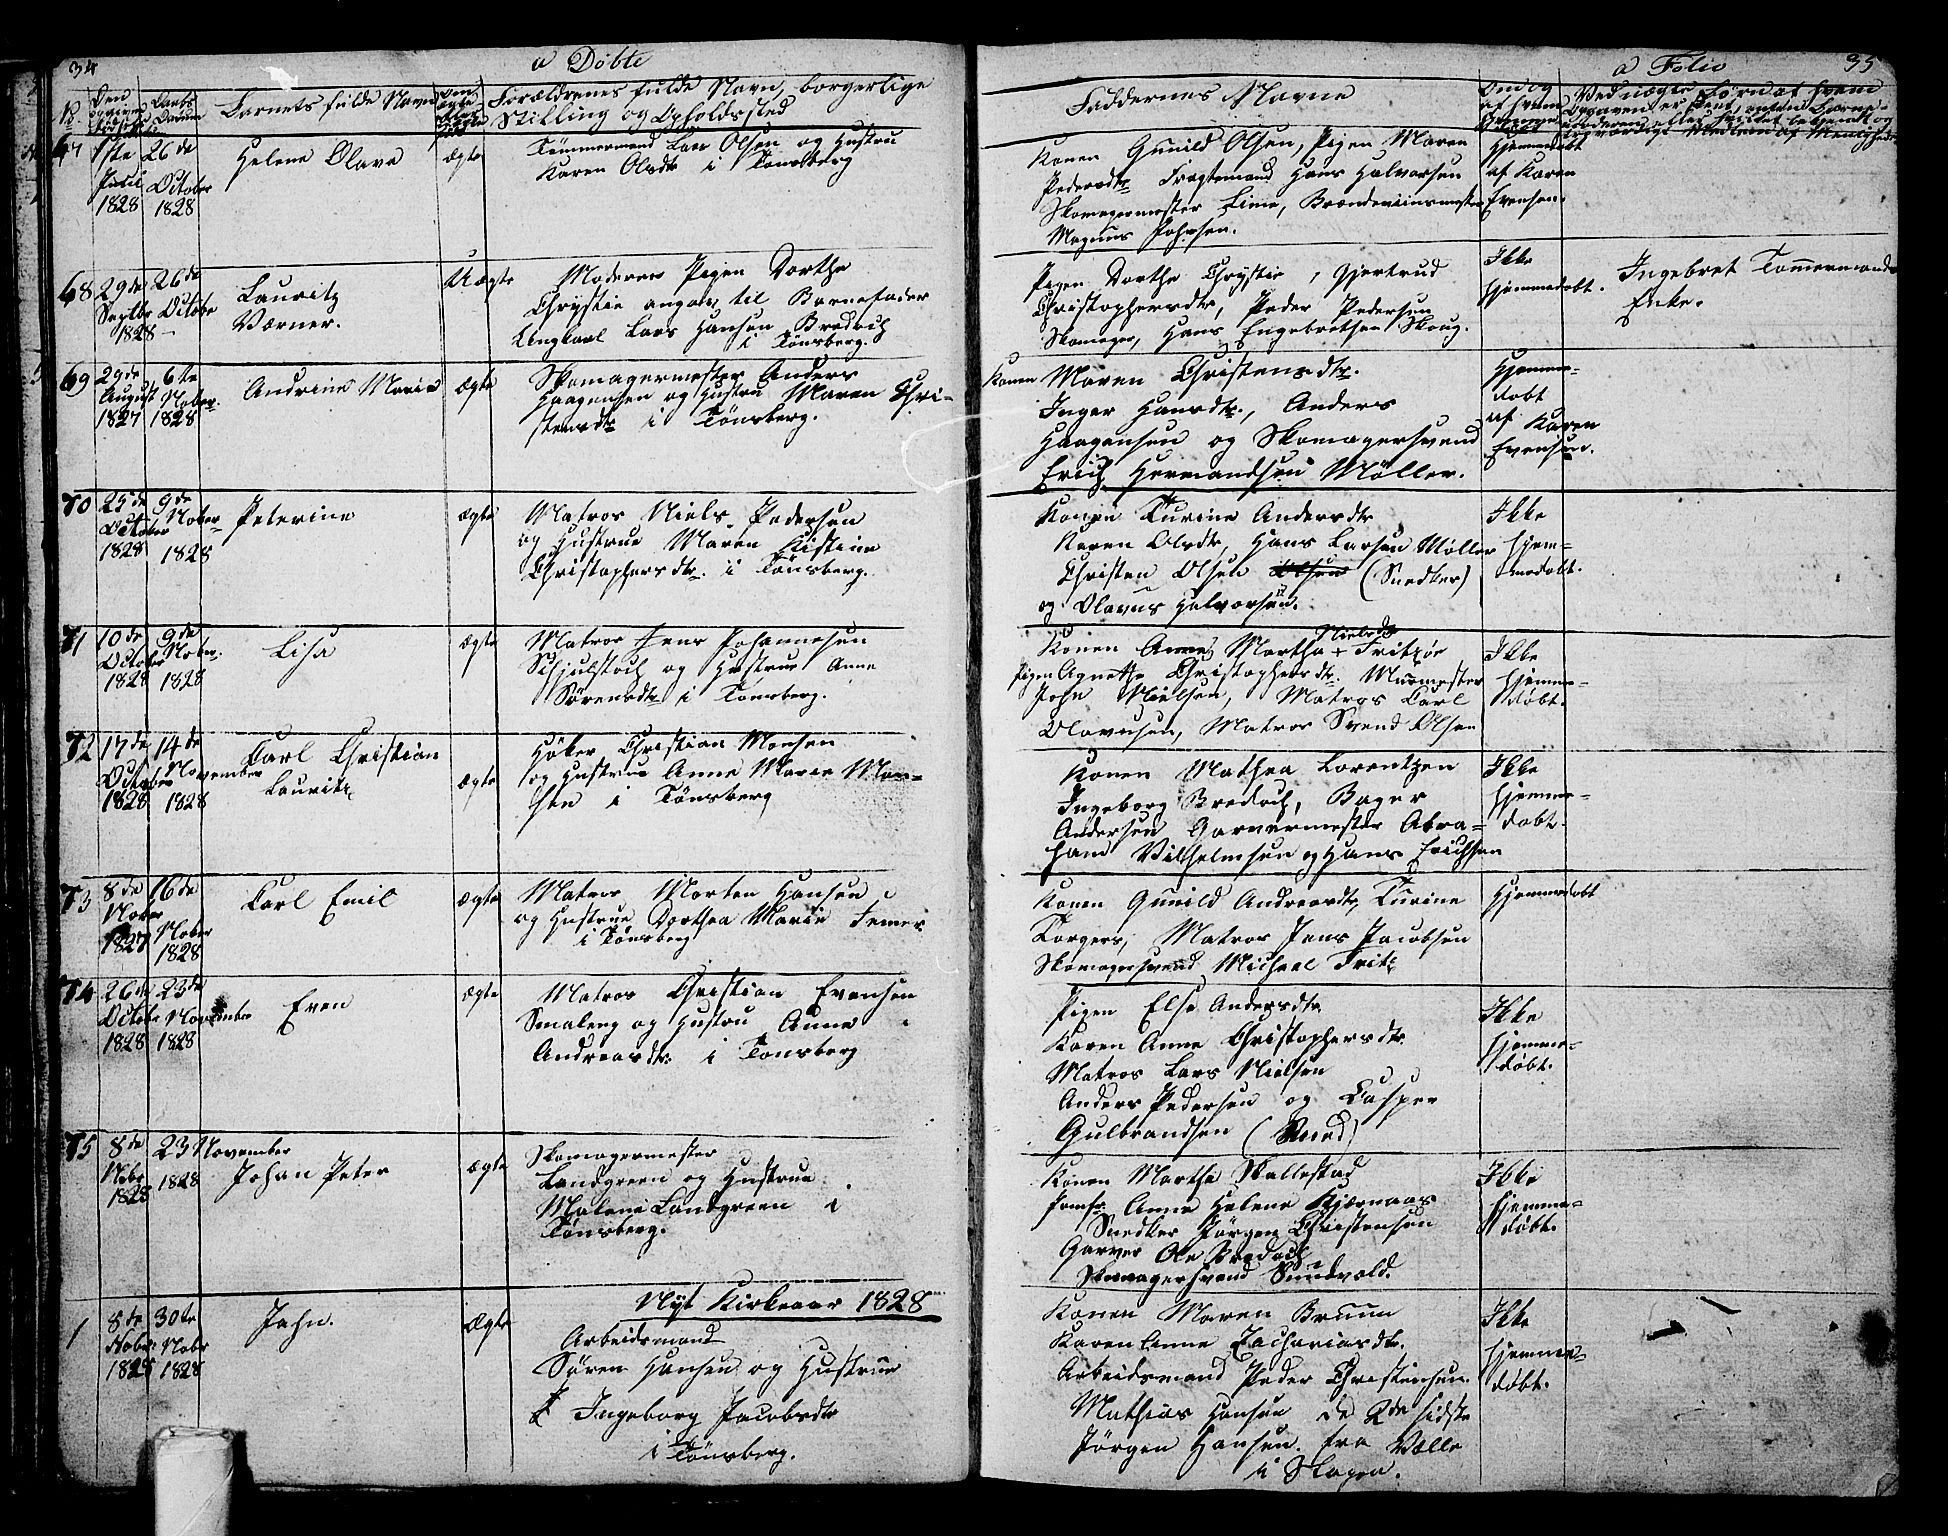 34
a Døbte
N.
Barnets fulde Navn
Forældrenes fulde Navn, borgerlige
Stilling og Opholdssted
67
1ste
Julii
1828
26de
October
1828
Helene Olave
ægte
Tømmermand Lars Olsen og Hustru
Karen Olsdtr i Tønsberg
68
29de
Septbr
1828
26de
Octobr
Lauritz
Værner.
Uægte
Moderen Pigen Dorthe
Chrystie angav til Barnefader
Lars Hansen Bredoch
i Tønsberg.
69
29de
August
1827
6te
Nober
1828
Andrine Marie
ægte
Skomagermester Anders
Haagensen og Hustru Maren Chri-
stensdtr i Tønsberg.
70
25de
October
1828
9de
Nober
1828
Peterine
ægte
Matros Niels Pedersen
og Hustrue Maren Kistine
Christophersdtr. i Tønsberg.
71
10de
October
1828
9de
Nobr.
1828
Lisa
ægte
Matros Jens Johannesen
Schjulstoch og Hustrue Anne
Sørensdtr i Tønsberg.
72
17de
October
1828
14de
November
1828
Carl Christian
Lauritz
ægte
Høker Christian Monsen
og Hustrue Anne Marie Mon-
sen i Tønsberg
73
8de
Nober
1827
16de
Nober
1828
Carl Emil
ægte
Matros Morten Hansen
og Hustrue Dorthea Marie Femer
i Tønsberg
74
26de
Octobr
1828
23de
November
1828
Even
ægte
Matros Christian Evensen
Smaleng og Hustru Anne
Andreasdtr. i Tønsberg
75
8de
Nobr
1828
23 November
1828
Johan Peter
ægte
Skomagermester
Landgreen og Hustrue
Malene Landgreen i
Tønsberg.
Nyt Kirkeaar 1828
1
8de
Nobr.
1828
30te
Nobr
1828
Jahn.
Ægte
Arbeidsmand
Søren Hansen og Hustrue
Ingeborg Jacobsdtr
i Tønsberg.
a Folio
35
Faddernes Navne
Om og
af hvem
Konen Gunild Olsen, Pigen Maren
Pedersdtr Fragtemand Hans Halvorsen
Skomagermester Lime, Brændeviinsmester
Magnus Johnsen.
Hjemmedøbt
af Karen
Evensen.
Pigen Dorthe Chrystie, Gjertrud
Christophersdtr, Peder Pedersen
Skomager, Hans Engebretsen Skoug.
Ikke
hjemmedøbt.
Ingebret Tømmermands
Enke.
Konen Maren Christensdtr.
Inger Hansdtr., Anders
Haagensen og Skomagersvend
Erich Hermandsen Møller.
Hjemme-
døbt
af Karen
Evensen.
Konen Turine Andersdtr
Karen Olsdtr, Hans Larsen Møller
Christen Olsen Olsen (Snedker)
og Olavus Halvorsen.
Ikke
hjem-
medøbt.
Nielsdtr
Konen Anne Martha + Fritzøe
Pigen Agnethe Christophersdtr. Murmester
John Nielsen, Matros Carl
Olavusen, Matros Svend Olsen
Ikke
hjemme-
døbt.
Konen Mathea Lorentzen
Ingeborg Bredoch, Bager
Andersen Garvermester Abra-
ham Vilhelmsen og Hans Erichsen
Ikke
hjemme-
døbt.
Konen Gunild Andreasdtr, Turine
Torgers, Matros Jens Jacobsen
Skomagersvend Michael Fritz
Hjemmedøbt
Pigen Else Andersdtr
Karen Anne Christophersdtr
Matros Lars Nielsen
Anders Pedersen og Casper
Gulbrandsen
Ikke
hjemme-
døbt.
Konen Marthe Skallestad
Jomfr. Anne Helene Kjærnaas
Snedker Jørgen Christensen
Garver Ole Bredoch
Skomagersvend Sundvold.
Ikke
hjemme-
døbt.
Konen Maren Bruun
Karen Anne Zachariasdtr.
Arbeidsmand Peder Christensen.
Mathias Hansen de 2de sidste
Jørgen Hansen. fra Valle
i Slagen.
Ikke
hjemme-
døbt.